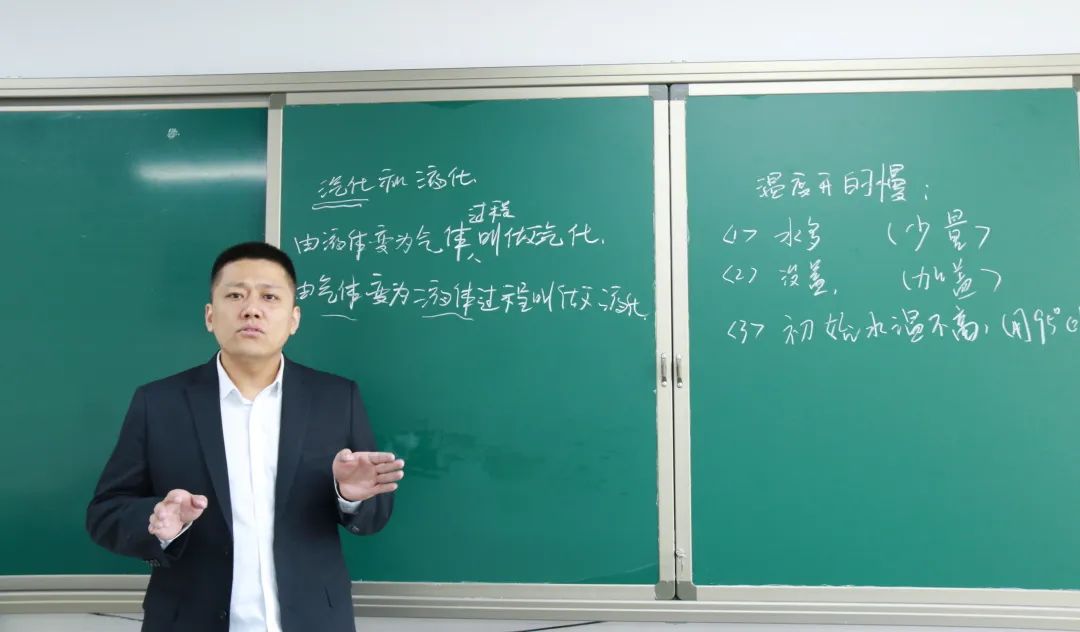 汽化和液化
过程
由液体变为气体叫做汽化.
由气体变为液体过程叫做液化.
温度升的慢:
<1> 水多 (少量)
<2> 没盖. (加盖)
<3> 初始水温不高, (用95°C